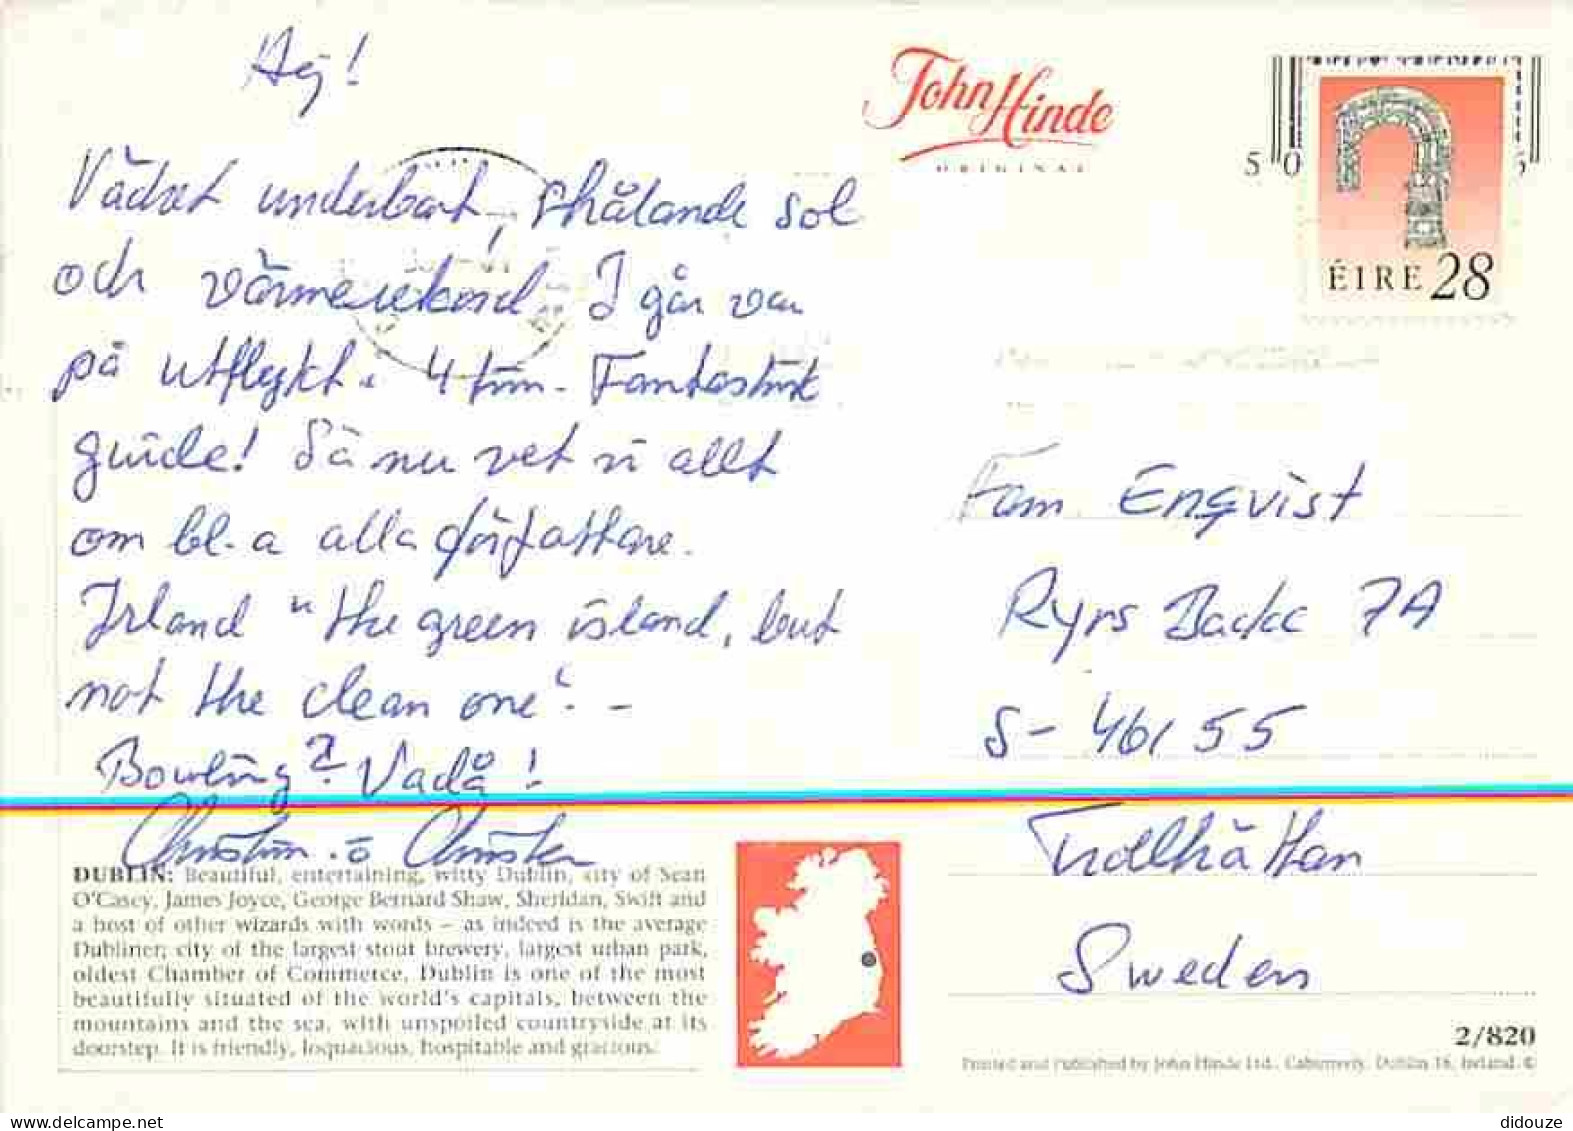 Hej!
Vädret underbart, strålande sol
och värmerekord I går var
på utflykt i 4 tim. Fantastisk
guide! Så nu vet vi allt
om bl.a alla författare.
Irland "the green island, but
not the clean one". -
Bowling? Vadå!
Christin. o Christer
John Hinde
ORIGINAL
ÉIRE 28
Fam Engqvist
Ryrs Backe 7A
S- 461 55
Trollhättan
Sweden
DUBLIN: Beautiful, entertaining, witty Dublin, city of Sean
O'Casey, James Joyce, George Bernard Shaw, Sheridan, Swift and
a host of other wizards with words – as indeed is the average
Dubliner; city of the largest stout brewery, largest urban park,
oldest Chamber of Commerce, Dublin is one of the most
beautifully situated of the world's capitals, between the
mountains and the sea, with unspoiled countryside at its
doorstep. It is friendly, loquacious, hospitable and gracious.
2/820
Printed and Published by John Hinde Ltd., Cabinteely, Dublin 18, Ireland. ©
didouze